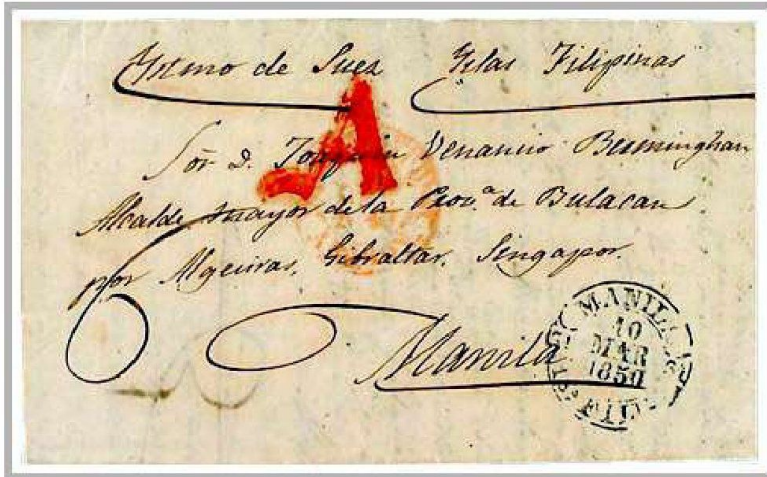 Ystmo de Suez Yslas Filipinas
A
Sor. D. Joaquin Venancio Bermingham
Alcalde mayor de la Prova. de Bulacan
por Algeciras, Gibraltar, Singapor.
Manila
MANILA
10
MAR
1850
FIL